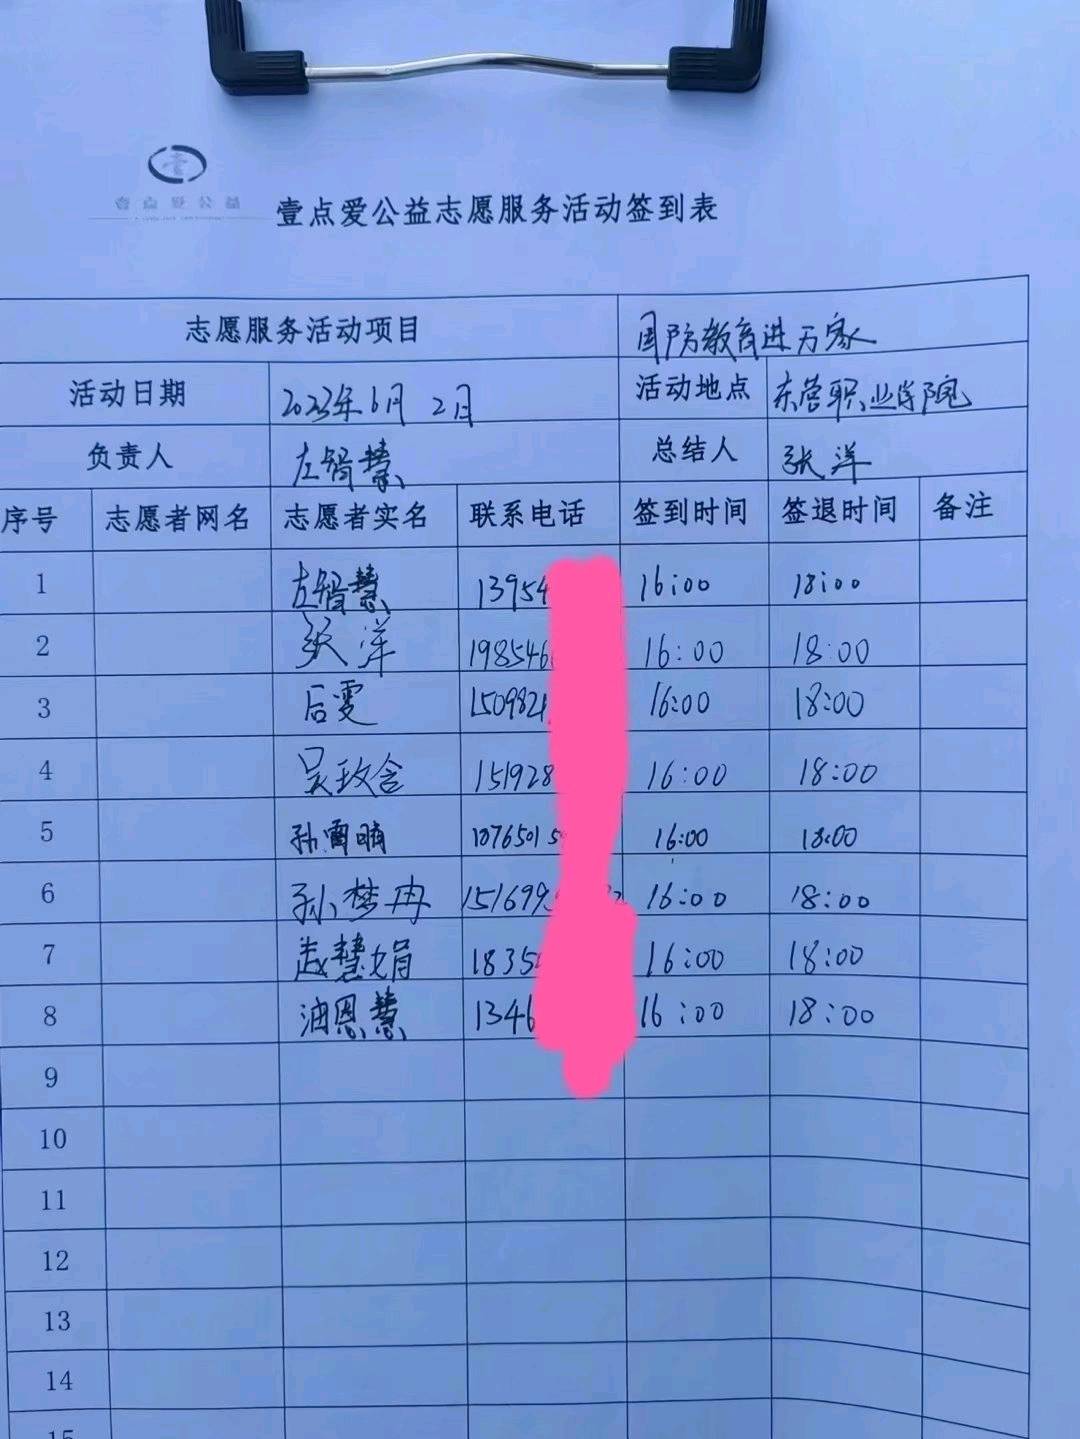 壹点爱公益
壹点爱公益志愿服务活动签到表
志愿服务活动项目 国防教育进万家
活动日期 2023年6月2日 活动地点 东营职业学院
负责人 左智慧 总结人 张洋
序号 志愿者网名 志愿者实名 联系电话 签到时间 签退时间 备注
1 左智慧 13954 16:00 18:00
2 张洋 198546 16:00 18:00
3 后雯 1509821 16:00 18:00
4 吴玫含 151928 16:00 18:00
5 孙 16:00 18:00
6 孙梦冉 151699 16:00 18:00
7 赵慧娟 1835 16:00 18:00
8 油恩慧 1346 16:00 18:00
9
10
11
12
13
14
15